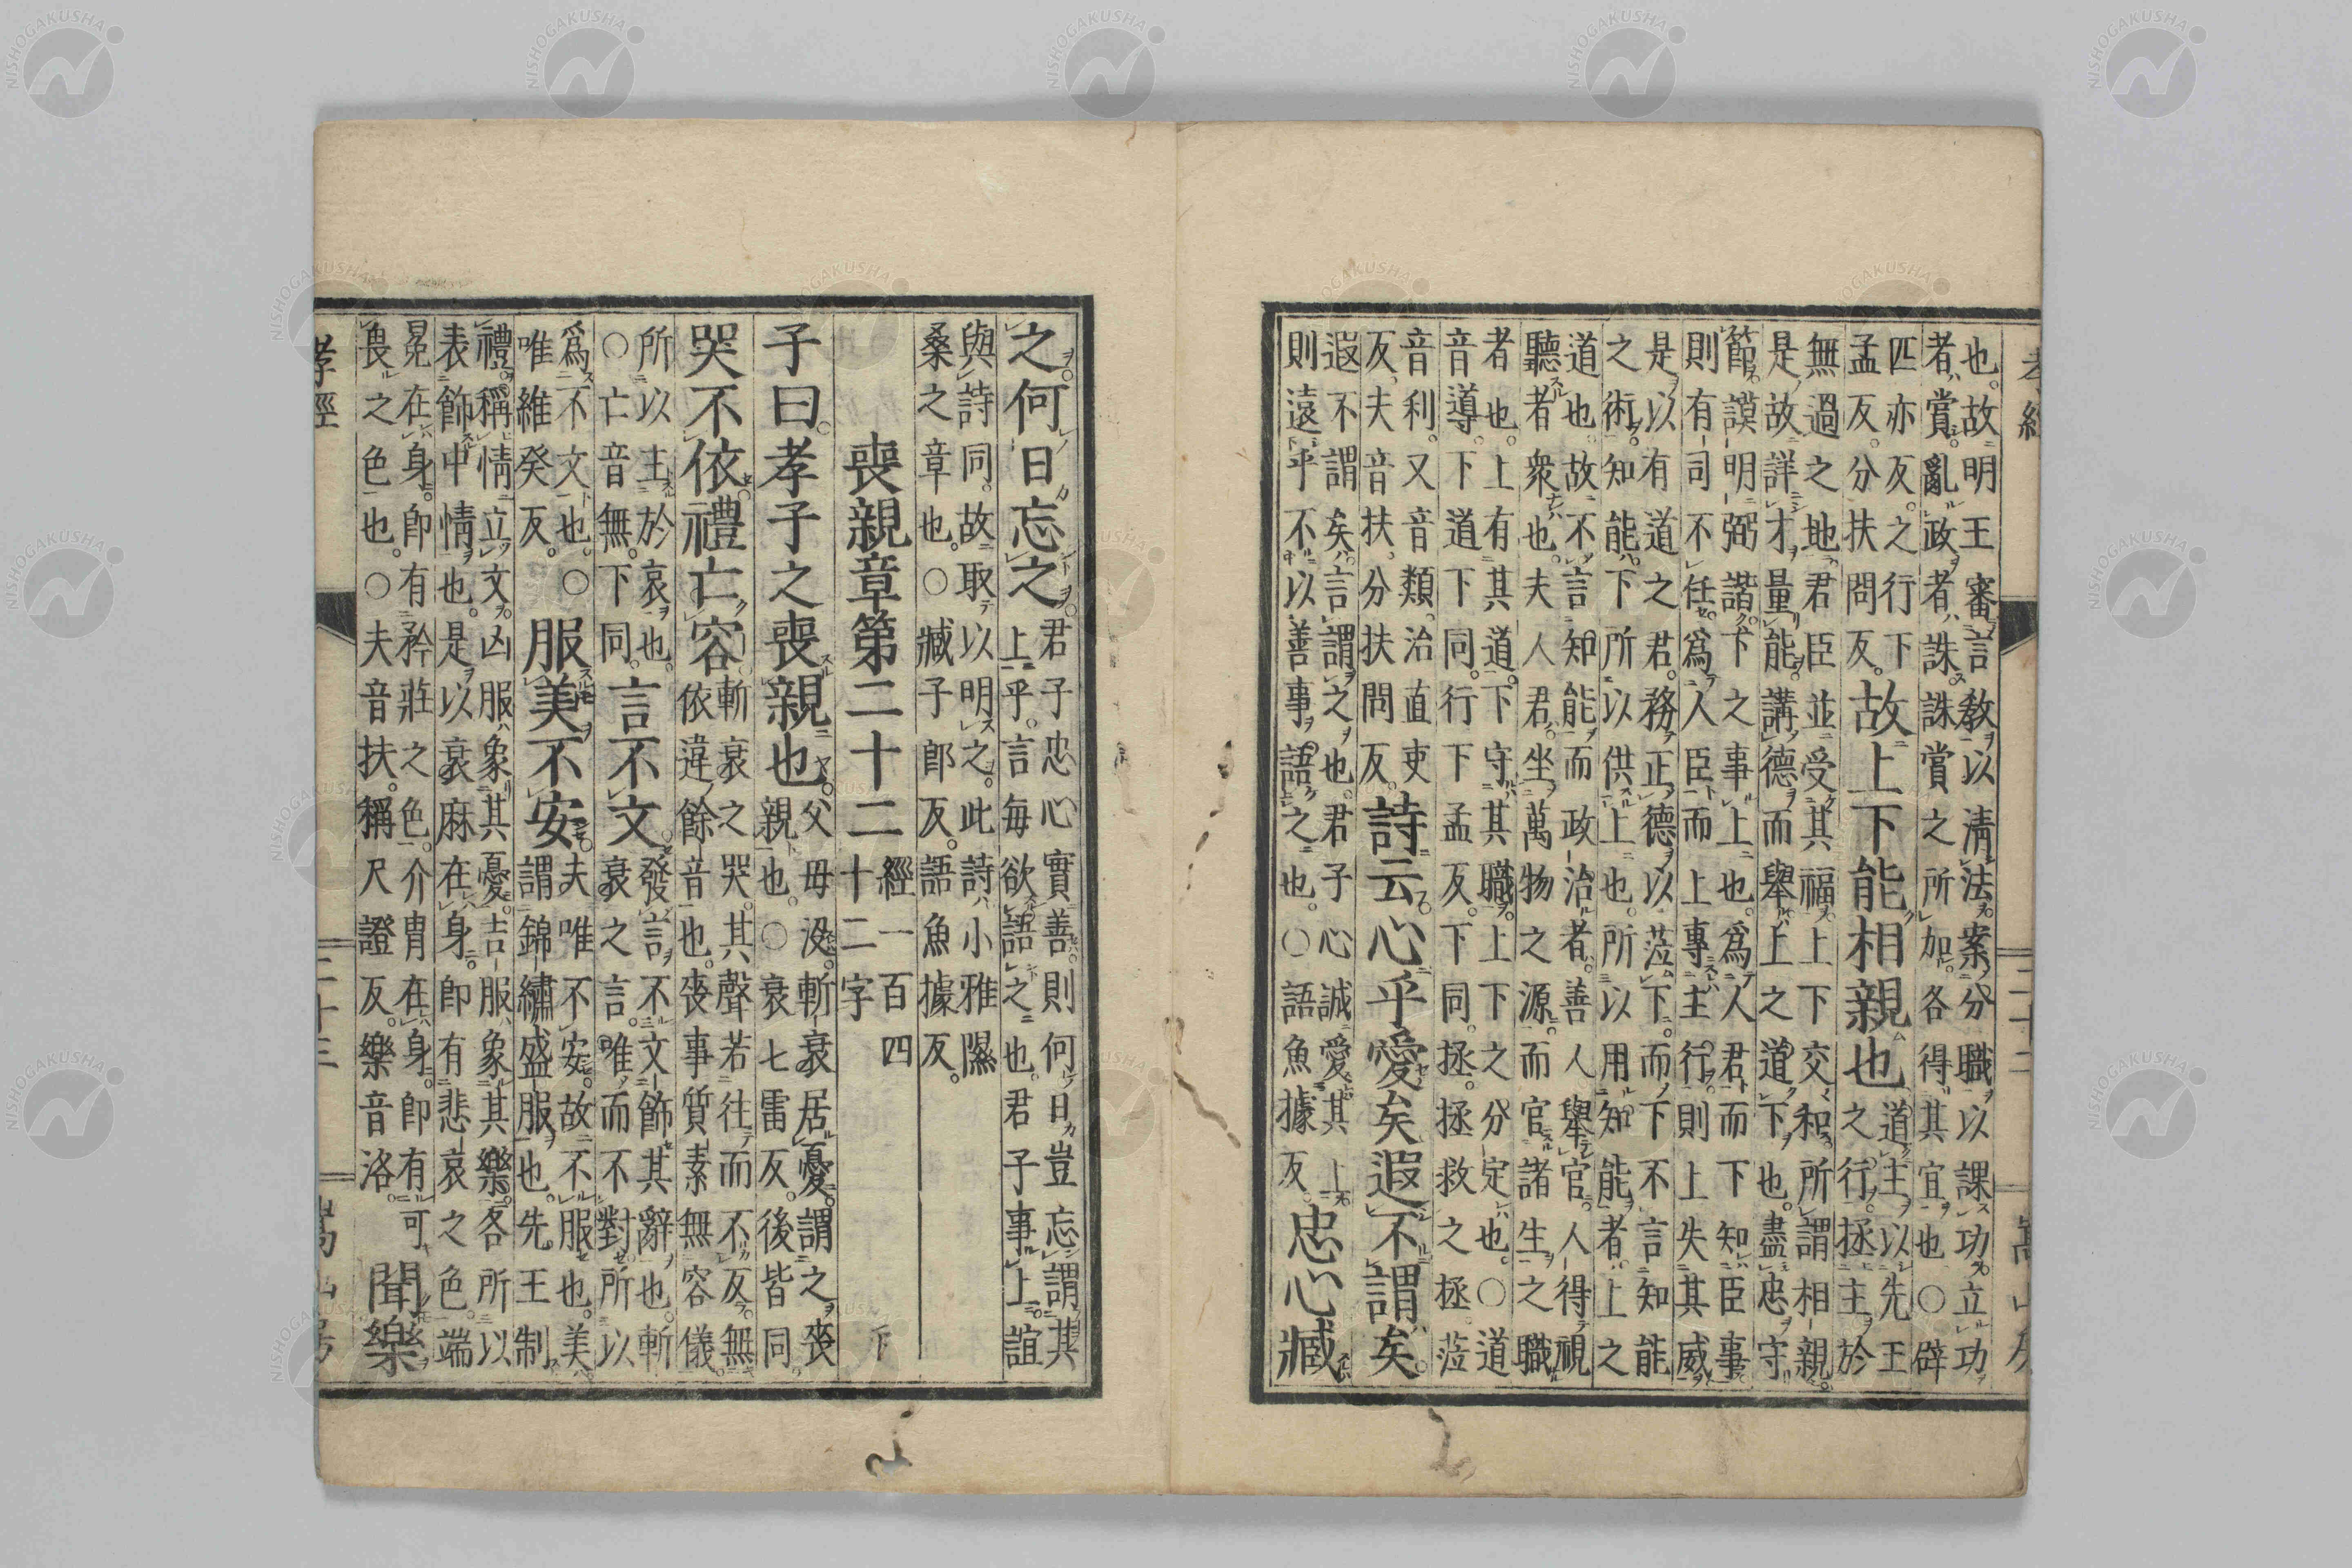 孝經 二十二 嵩山房
也。故明王審言教以清法案分職以課功立功
者賞。亂政者誅。誅賞之所加。各得其宜也○辟
匹亦反。之行下
孟反。分扶問反。
故上下能相親也
道主以先王
之行。拯主於
無過之地。君臣並受其福。上下交和。所謂相親。
是故詳才量能。講德而舉。上之道下也。盡忠守
節。謨明弼諧。下之事上也。爲人君而下知臣事
則有司不任。爲人臣而上專主行。則上失其威
是以有道之君。務正德以莅下。而下不言知能
之術。知能下所以供上也。所以用知能者上之
道也。故不言知能而政治者。善人舉官。人得視
聽者衆也。夫人君坐萬物之源。而官諸生之職
者也。上有其道。下守其職。上下之分定也。○道
音導。下道下同。行下孟反。下同。拯。拯救之拯。莅
音利。又音類。治直吏
反。夫音扶。分扶問反。
詩云心乎愛矣遐不謂矣。
遐不謂矣。言謂之也。君子心誠愛其上
則遠乎不以善事語之也。○語魚據反。
忠心臧
之何日忘之
君子忠心實善。則何日豈忘。謂其
上乎。言每欲語之也。君子事上誼
與詩同。故取以明之。此詩小雅隰
桑之章也。○臧子郎反。語魚據反。
喪親章第二十二
經一百四
十二字
子曰孝子之喪親也。
父母沒。斬衰居憂。謂之喪
親也。○衰七雷反。後皆同
哭不依禮亡容
斬衰之哭。其聲若往而不反。無
依違餘音也。喪事質素無容儀
所以主於哀也。
○亡音無。下同。
言不文
發言不文飾其辭也。斬
衰之言。唯而不對。所以
爲不文也。○
唯維癸反。
服美不安
夫唯不安。故不服也。美
謂錦繡盛服也。先王制
禮。稱情立文。凶服象其憂。吉服象其樂。各所以
表飾中情也。是以衰麻在身。即有悲哀之色。端
冕在身。即有矜莊之色。介冑在身。即有可
畏之色也。○夫音扶。稱尺證反。樂音洛。
聞樂
孝經 二十三 嵩山房
NISHOGAKUSHA